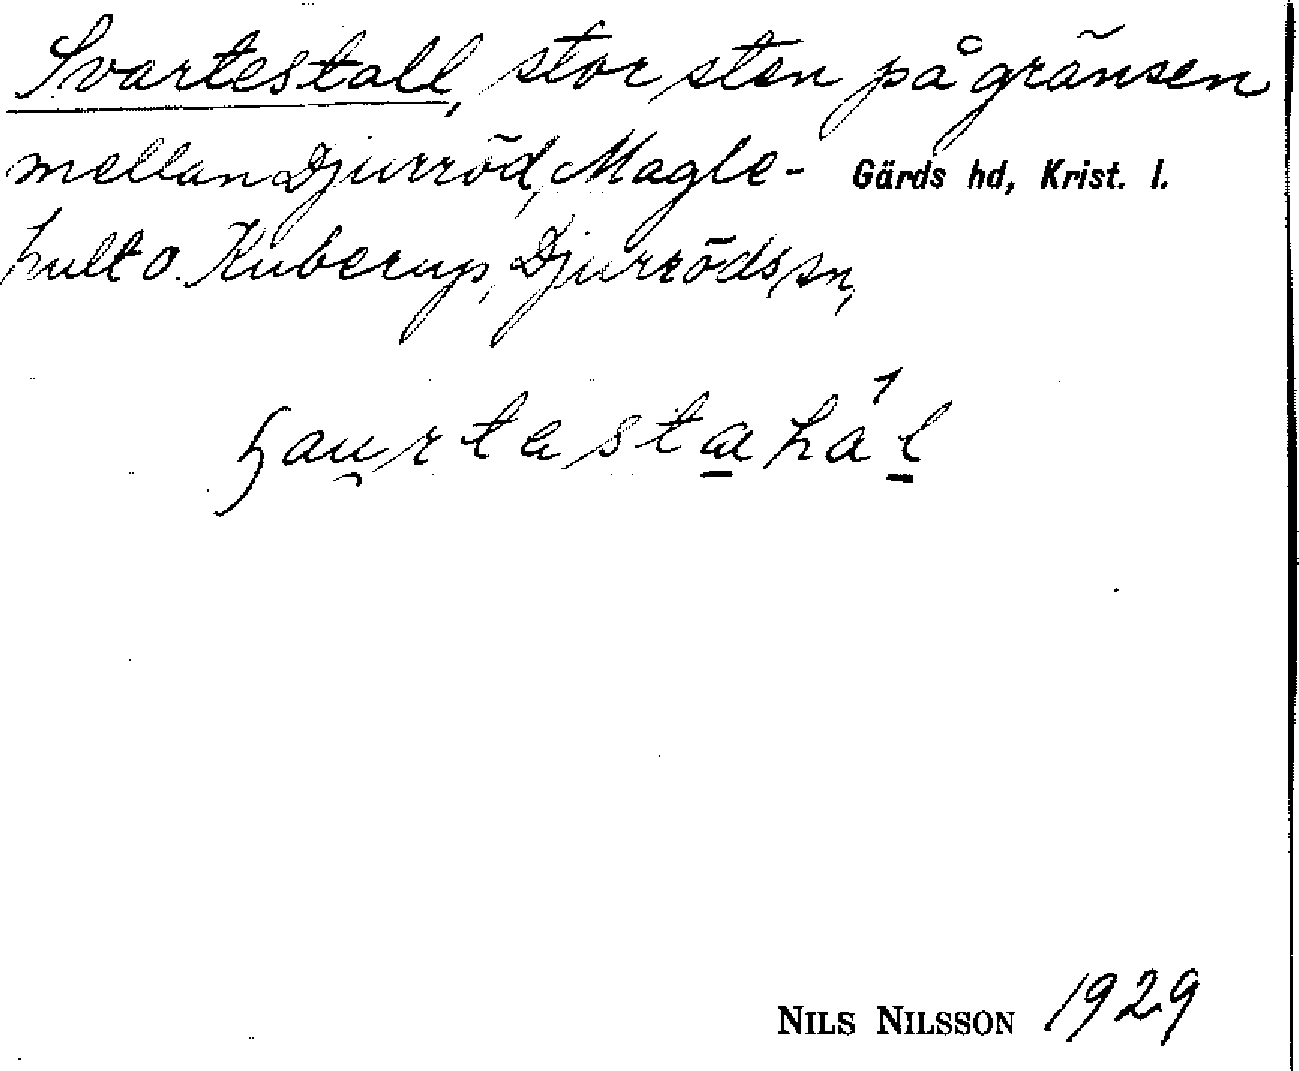 Svartestall, stor sten på gränsen
mellan Djurröd, Magle- Gärds hd, Krist. l.
hult o. Kuberup, Djurröds sn,
NILS NILSSON 1929